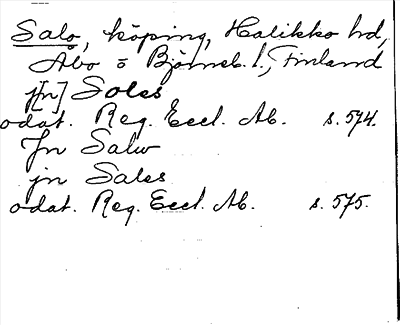 Salo, köping, Halikko hd,
Åbo o Björneb. l., Finland
j[n] Soles
odat. Reg. Eccl. Ab. s. 574.
Jn Salw
jn Sales
odat. Reg. Eccl. Ab. s. 575.